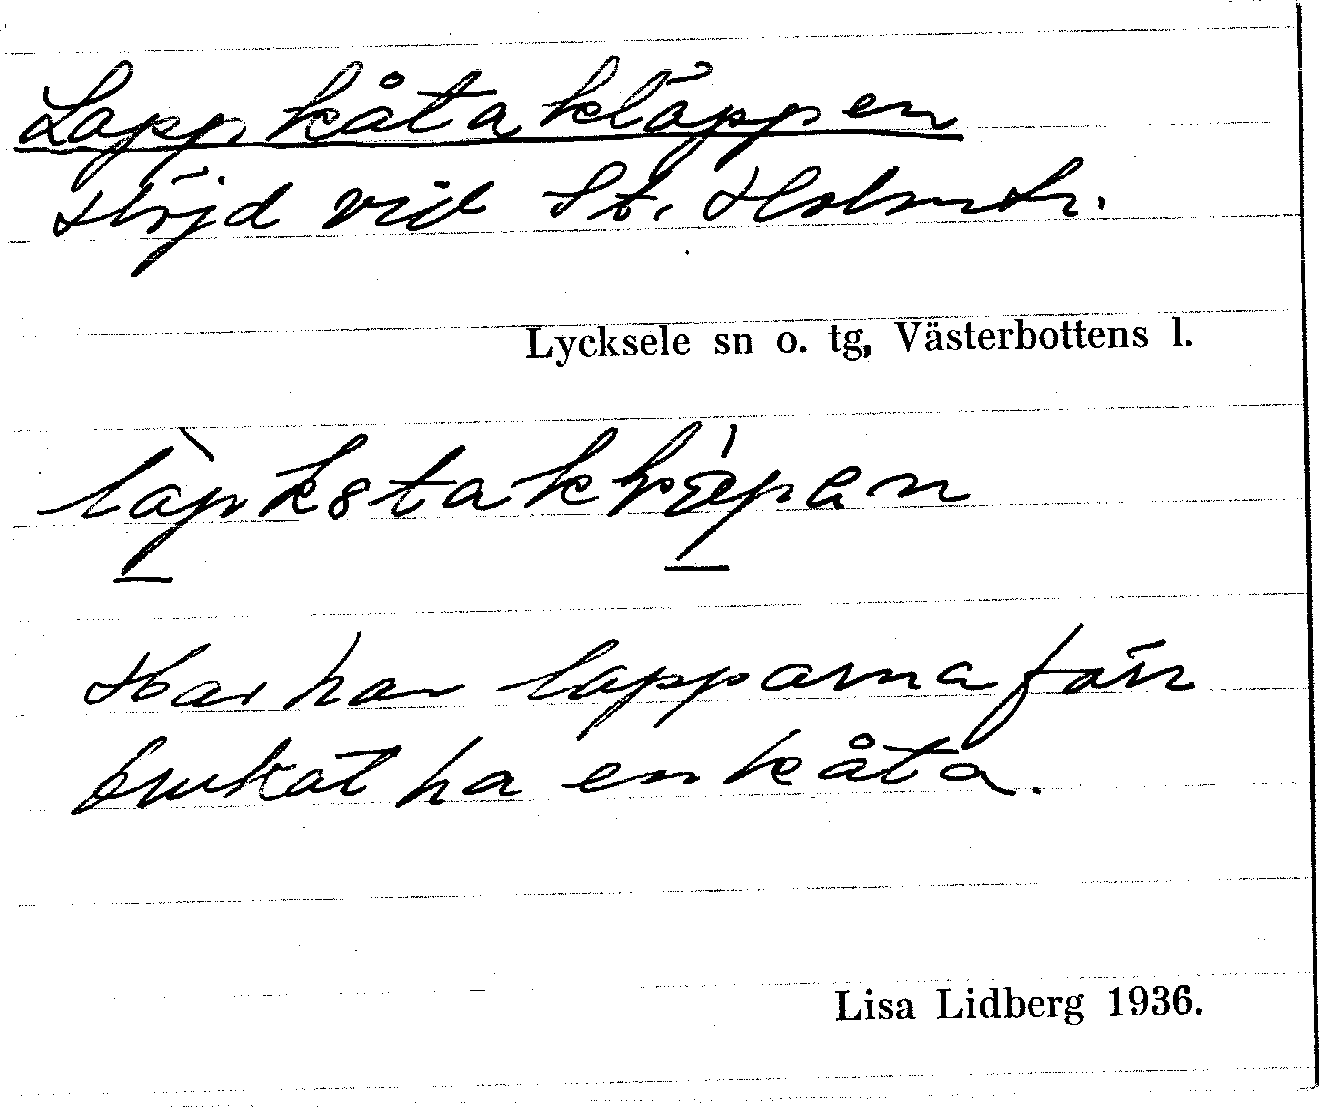 Lappkåtakläppen
Höjd vid St. Holmtr.
Lycksele sn o. tg, Västerbottens l.
Här har lapparna förr
brukat ha en kåta.
Lisa Lidberg 1936.